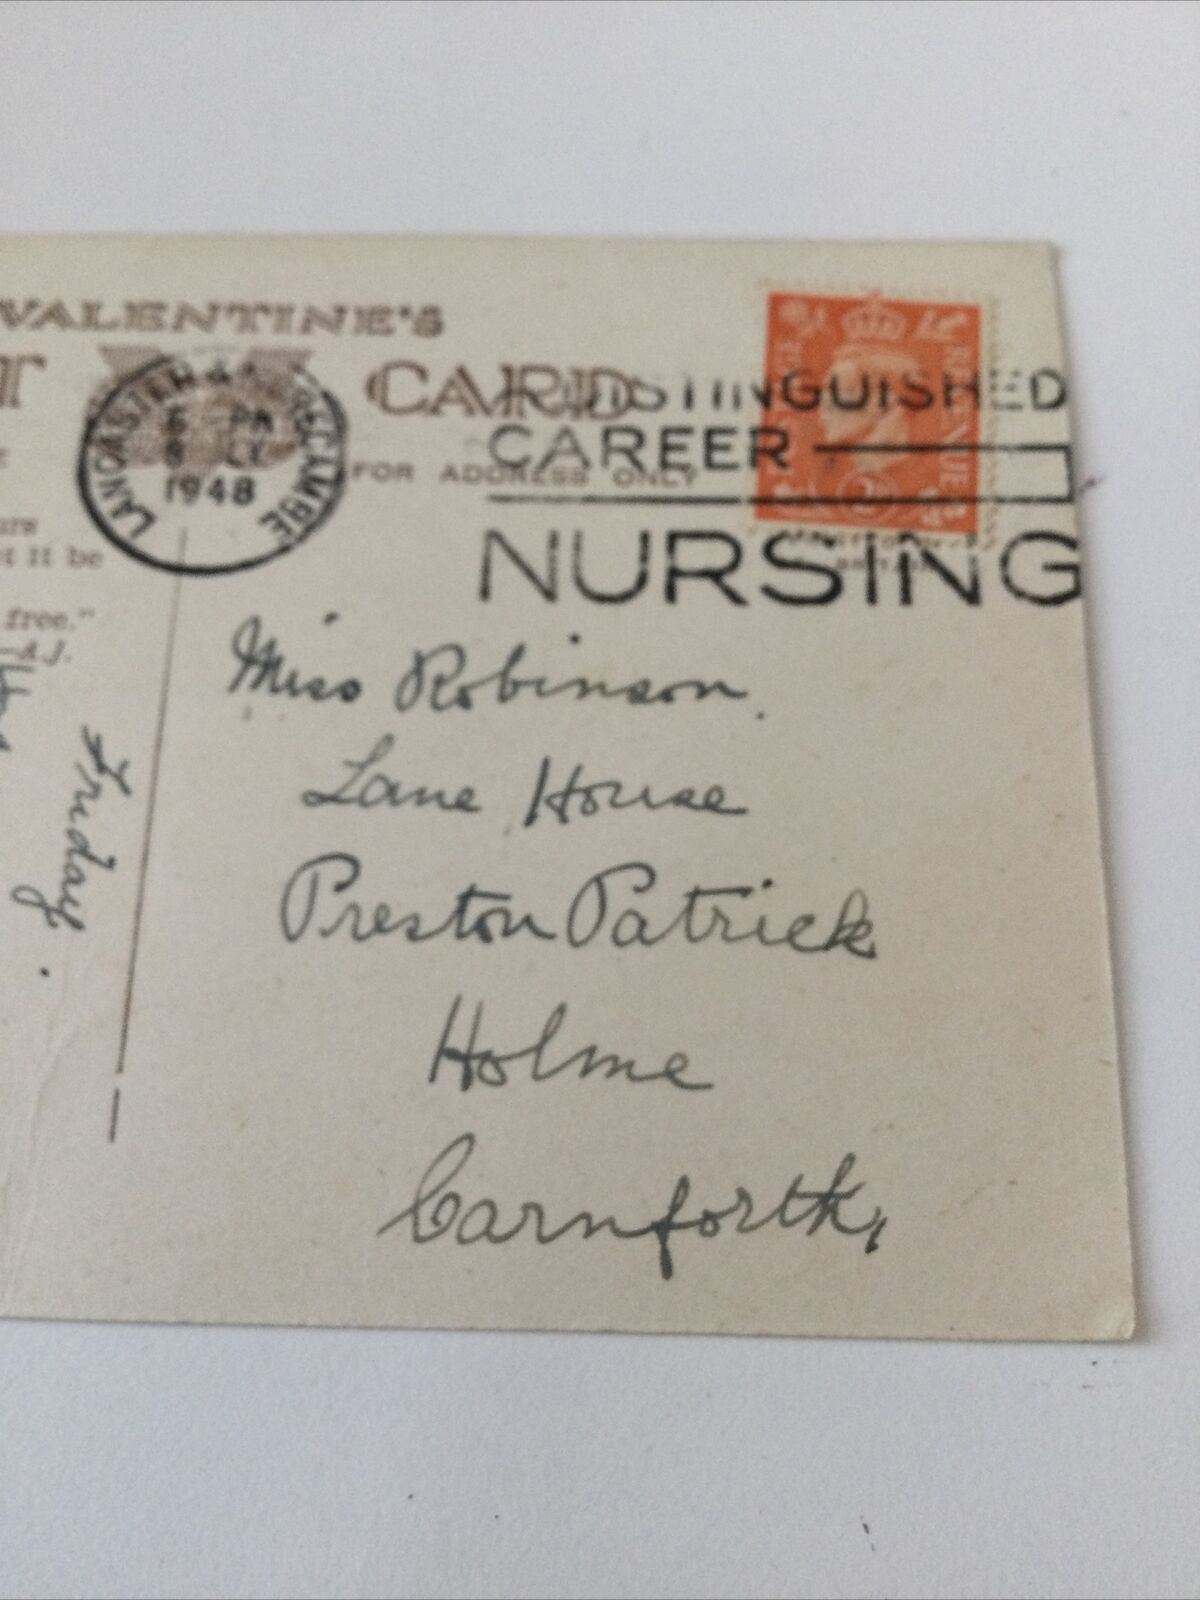 VALENTINE'S
CARD
FOR ADDRESS ONLY
LANCASTER & MORECAMBE
1948
DISTINGUISHED
CAREER
NURSING
REVENUE
it be
free."
—A.J.
Friday.
Miss Robinson.
Lane House
Preston Patrick
Holme
Carnforth,